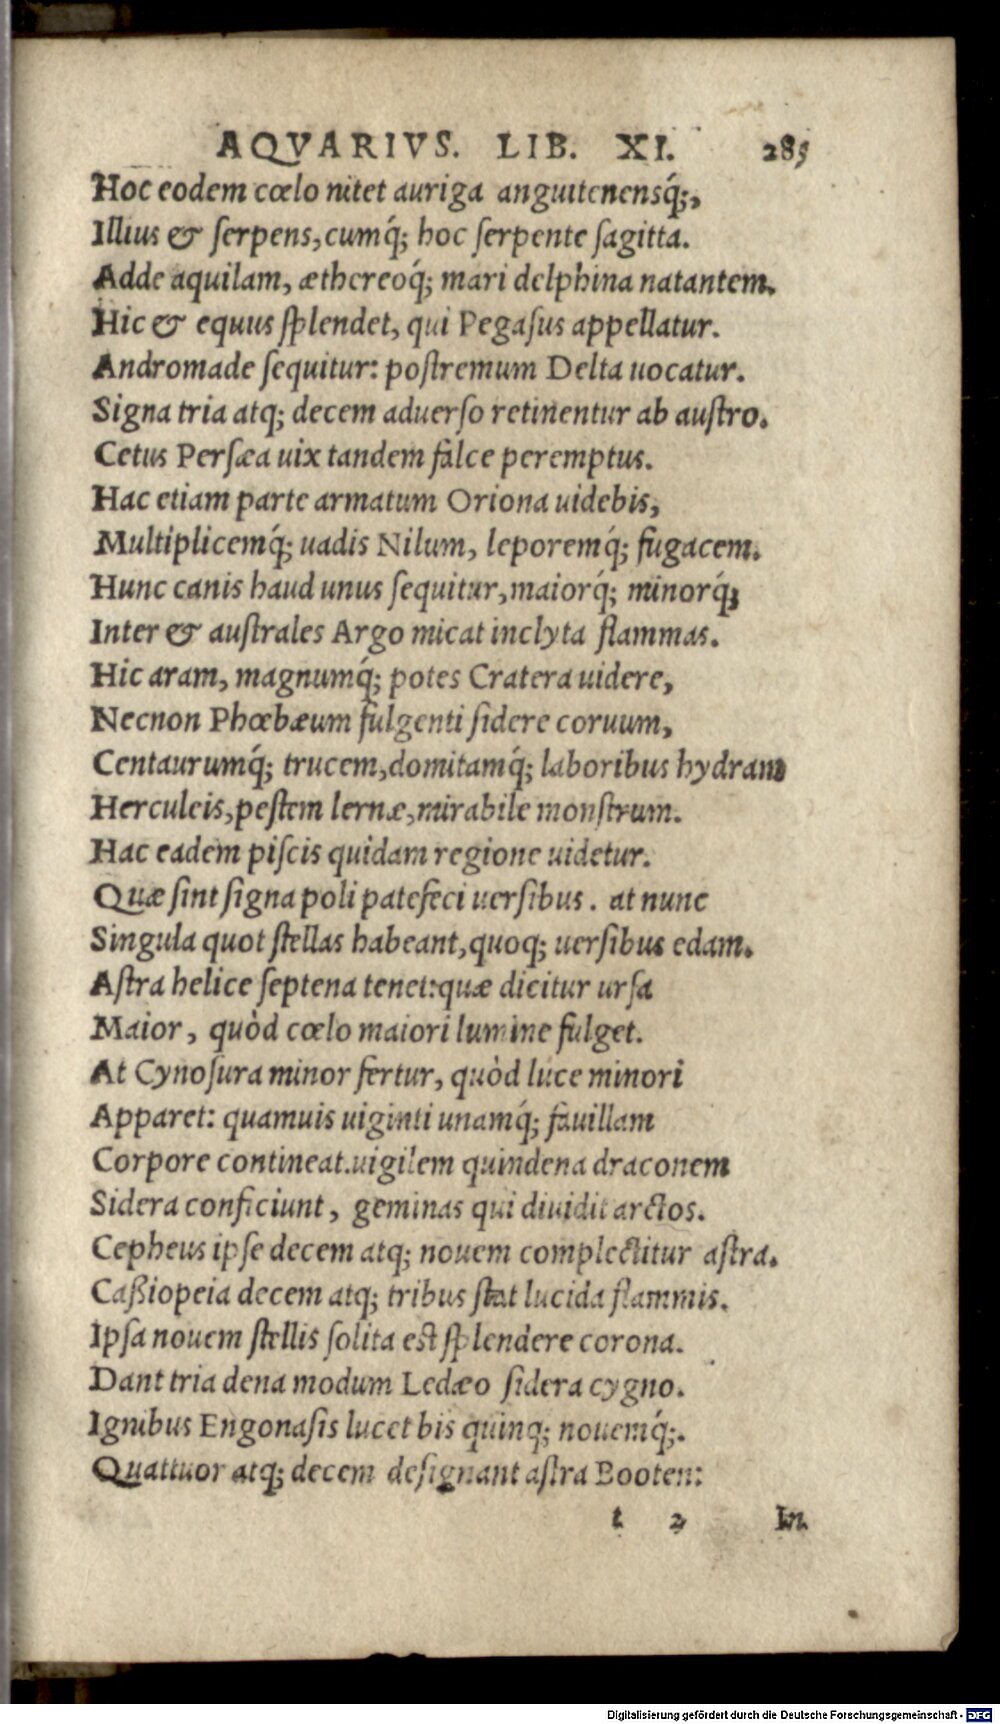 AQVARIVS. LIB. XI. 285
Hoc eodem cœlo nitet auriga anguitenensq́;,
Illius & ſerpens, cumq́; hoc ſerpente ſagitta.
Adde aquilam, æthereoq́; mari delphina natantem.
Hic & equus ſplendet, qui Pegaſus appellatur.
Andromade ſequitur: poſtremum Delta uocatur.
Signa tria atq; decem aduerſo retinentur ab auſtro.
Cetus Perſæa uix tandem falce peremptus.
Hac etiam parte armatum Oriona uidebis,
Multiplicemq́; uadis Nilum, leporemq́; fugacem.
Hunc canis haud unus ſequitur, maiorq́; minorq́;
Inter & auſtrales Argo micat inclyta flammas.
Hic aram, magnumq́; potes Cratera uidere,
Necnon Phœbæum fulgenti ſidere coruum,
Centaurumq́; trucem, domitamq́; laboribus hydram
Herculeis, peſtem lernæ, mirabile monſtrum.
Hac eadem piſcis quidam regione uidetur.
Quæ ſint ſigna poli patefeci uerſibus. at nunc
Singula quot ſtellas habeant, quoq; uerſibus edam.
Aſtra helice ſeptena tenet: quæ dicitur urſa
Maior, quòd cœlo maiori lumine fulget.
At Cynoſura minor fertur, quòd luce minori
Apparet: quamuis uiginti unamq́; fauillam
Corpore contineat. uigilem quindena draconem
Sidera conficiunt, geminas qui diuidit arctos.
Cepheus ipſe decem atq; nouem complectitur aſtra.
Caßiopeia decem atq; tribus ſtat lucida flammis.
Ipſa nouem ſtellis ſolita eſt ſplendere corona.
Dant tria dena modum Ledæo ſidera cygno.
Ignibus Engonaſis lucet bis quinq; nouemq́;.
Quattuor atq; decem deſignant aſtra Booten:
t 2 In
Digitalisierung gefördert durch die Deutsche Forschungsgemeinschaft - DFG